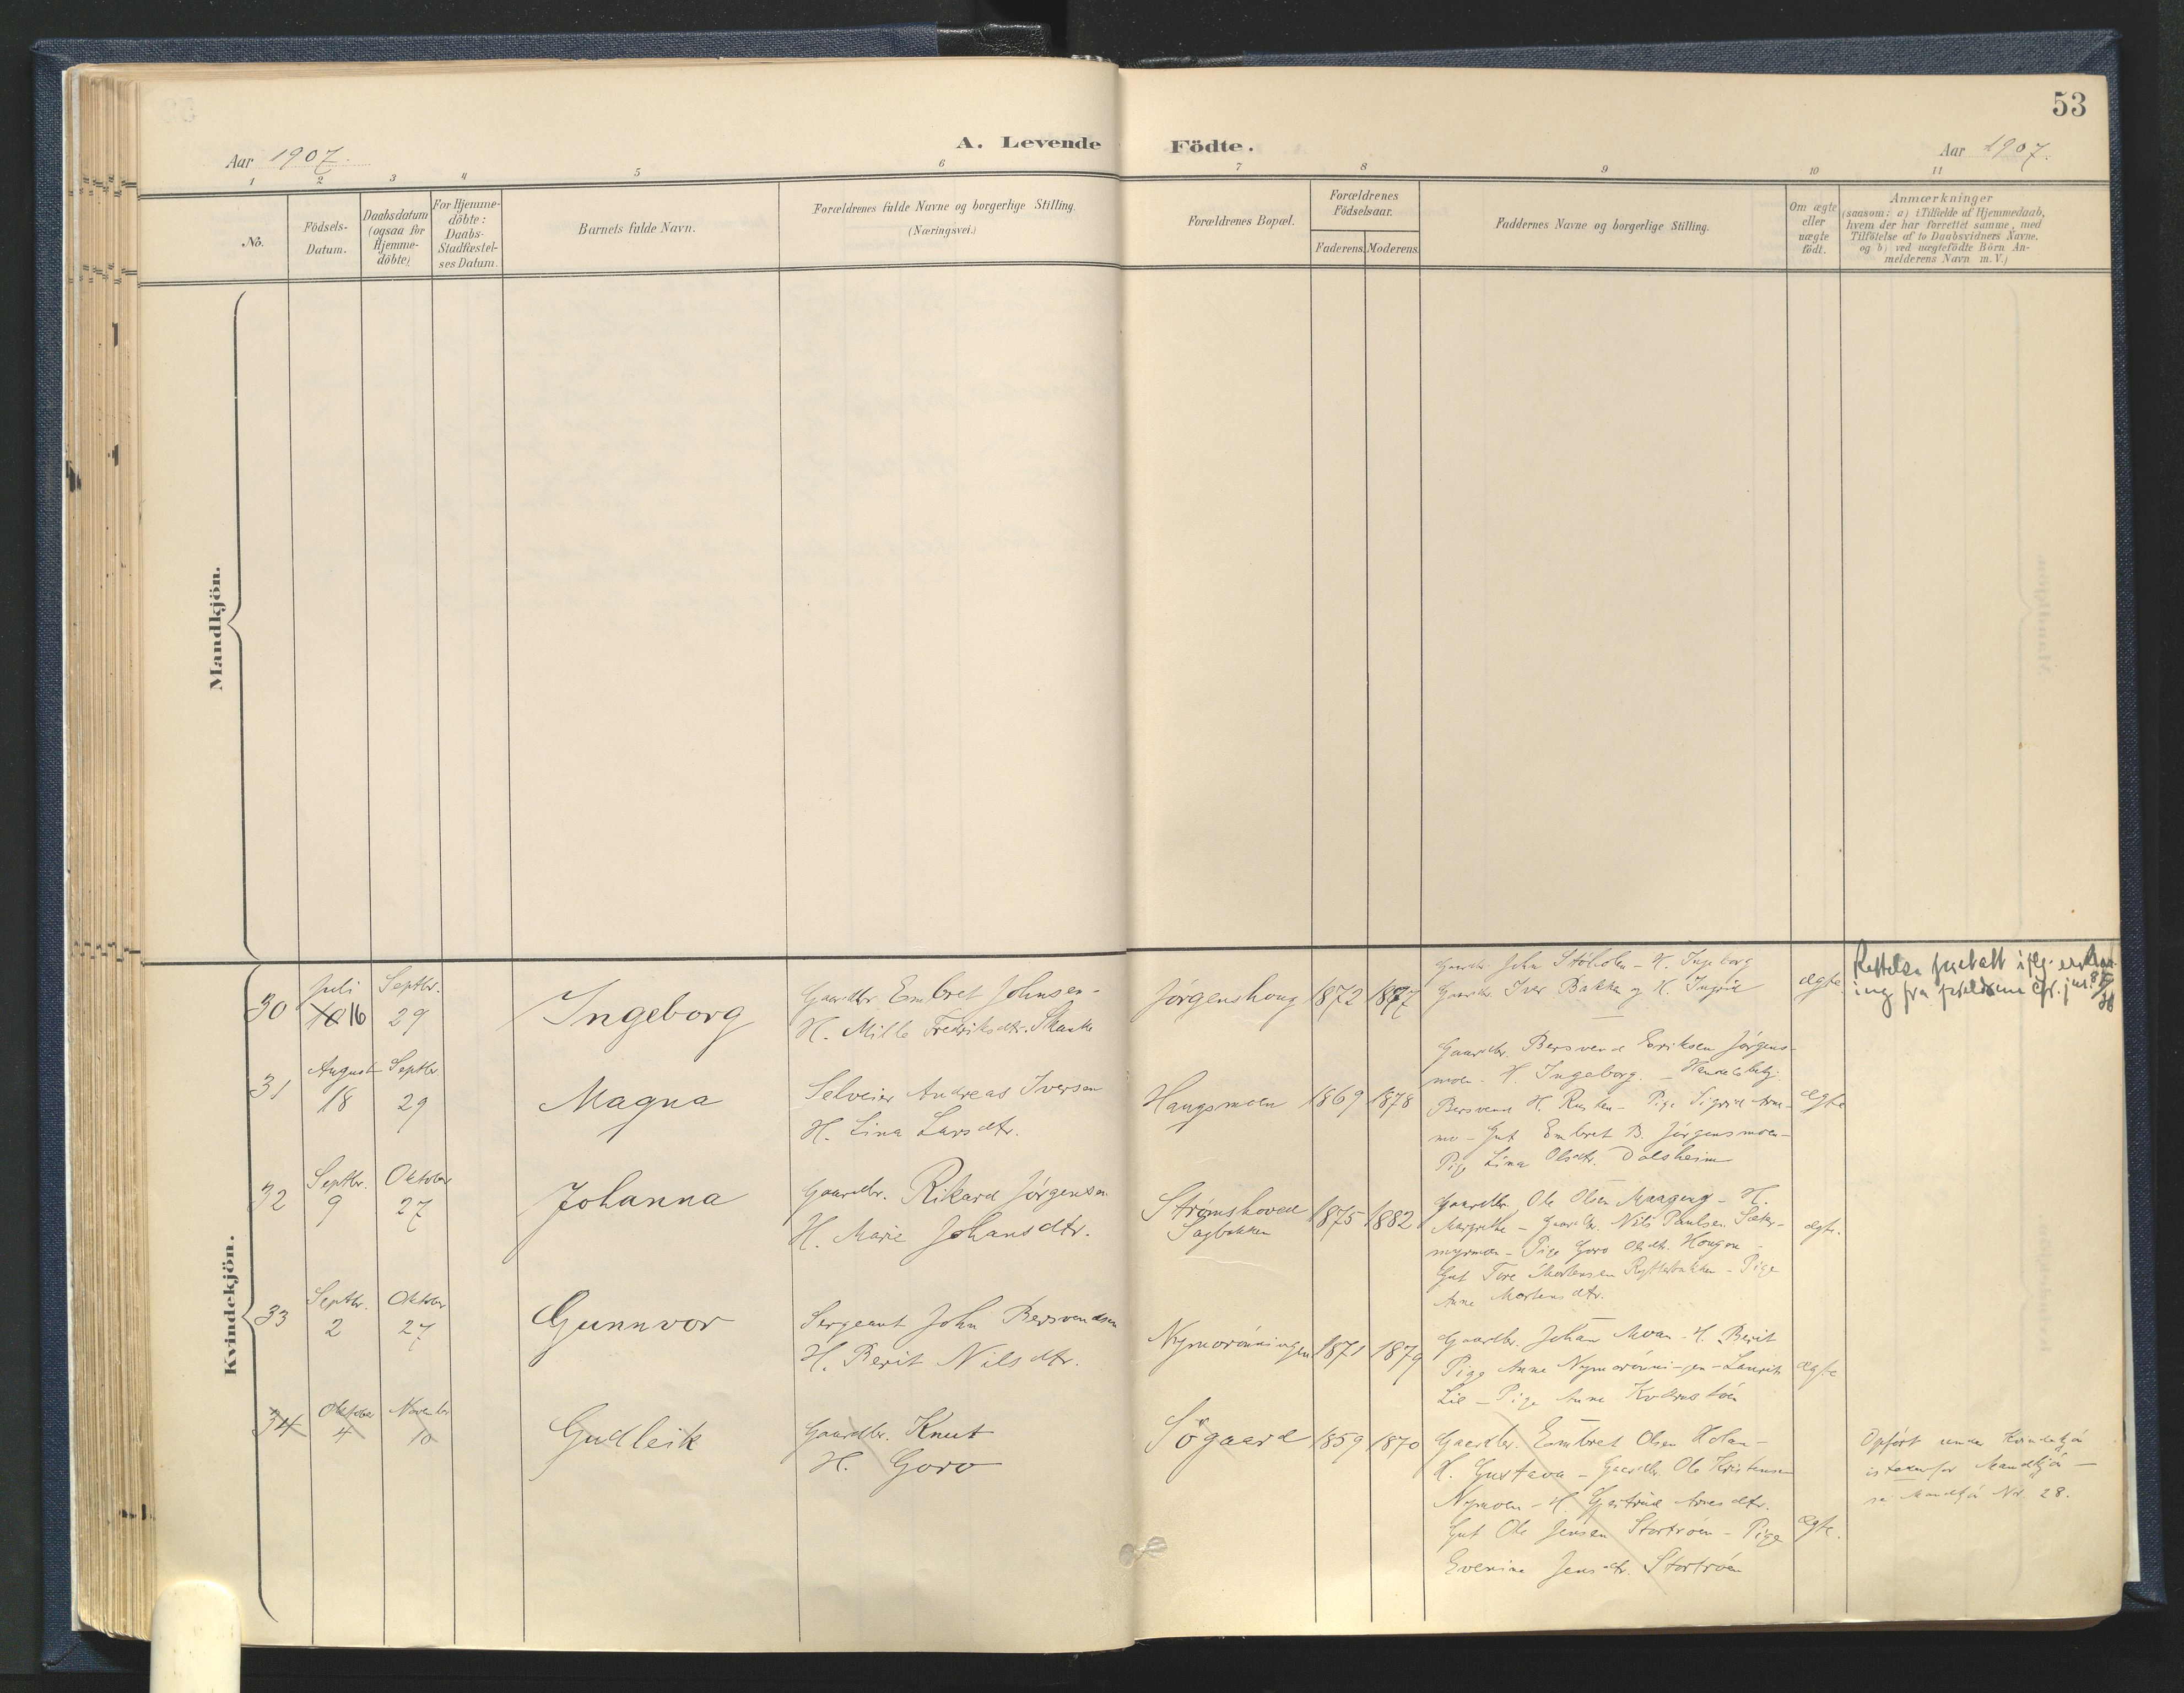 53
Aar 1907.
A. Levende Födte.
Aar 1907.
1 2 3 4 5 6 7 8 9 10 11
No.
Födsels-
Datum.
Daabsdatum
(ogsaa for
Hjemme-
döbte)
For Hjemme-
döbte:
Daabs-
Stadfæstel-
ses Datum.
Barnets fulde Navn.
Forældrenes fulde Navne og borgerlige Stilling.
(Næringsvei.)
Forældrenes Bopæl.
Forældrenes
Födselsaar.
Faderens. Moderens.
Faddernes Navne og borgerlige Stilling.
Om ægte
eller
uægte
födt.
Anmærkninger
(saasom: a) i Tilfælde af Hjemmedaab,
hvem der har forrettet samme, med
Tilföielse af to Daabsvidners Navne,
og b) ved uægtefödte Börn An-
melderens Navn m.V.)
Mandkjön.
Kvindekjön.
30
Juli
10 16
Septbr.
29
Ingeborg
Gaardbr. Embret Johnsen-
H. Milla Fredriksdtr. Skanke
Jørgenshoug
1872
1877
Gaardbr. John Stølolen - H. Ingeborg
Gaardbr. Iver Bakken og H. Ingrid
ægte
Rettelse foretatt iflg. erklær-
ing fra foreldrene
31
August
18
Septbr.
29
Magna
Selveier Andreas Iversen
H. Lina Larsdtr.
Haugsmoen
1869
1878
Gaardbr. Bersvend Eriksen Jørgens-
moen. H. Ingeborg. - Handelsbetj.
Bersvend H. Rusten - Pige Sigrid Arne-
mo - Gut Embret B. Jørgensmoen -
Pige Lina Olsdtr. Dalsheim
ægte
32
Septbr.
9
Oktober
27
Johanna
Gaardbr. Rikard Jørgensen
H. Marie Johansdtr.
Strømshoved
Sagbakken
1875
1882
Gaardbr. Ole Olsen Maageng - H.
Margrethe - Gaardbr. Nils Paulsen Sæter-
myrmoen - Pige Goro Olsdtr. Hougen -
Gut Tore Mortensen - Pige
Anne Mortensdtr.
ægte.
33
Septbr.
2
Oktober
27
Gunnvor
Sergeant John Bersvendsen
H. Berit Nilsdtr.
Nymorønningen
1871
1879
Gaardbr. Johan Moan - H. Berit
Pige Anne Nymorønni-gen - Laurits
Lie - Pige Anne
ægte
34
Oktober
4
November
10
Gudleik
Gaardbr. Knut
H. Goro
Søgaard
1859
1870
Gaardbr. Embret Olsen Kolan -
H. Gustava - Gaardbr. Ole Kristensen
Nymoen - H. Gjertrud Arnesdtr.
Gut Ole Jensen Stortrøen - Pige
Evenine Jensdtr. Stortrøen
ægte.
Opført under Kvindekjøn
istedenfor Mandkjøn -
se Mandkjøn No. 28.